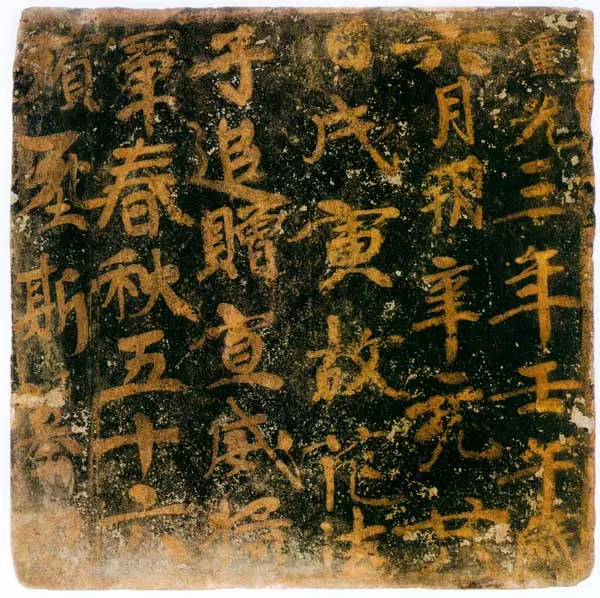 重光三年壬午歲
六月朔辛亥廿八
日戊寅故氾法
子追贈宣威將
軍春秋五十六
斯